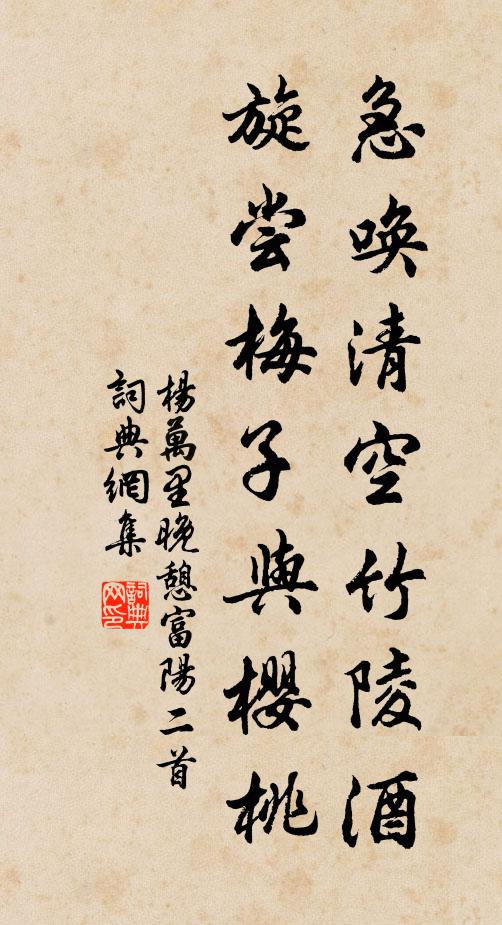 急唤清空竹陵酒
旋尝梅子與櫻桃
楊萬里晚憩富陽二首
詞典網集
詞典
网印